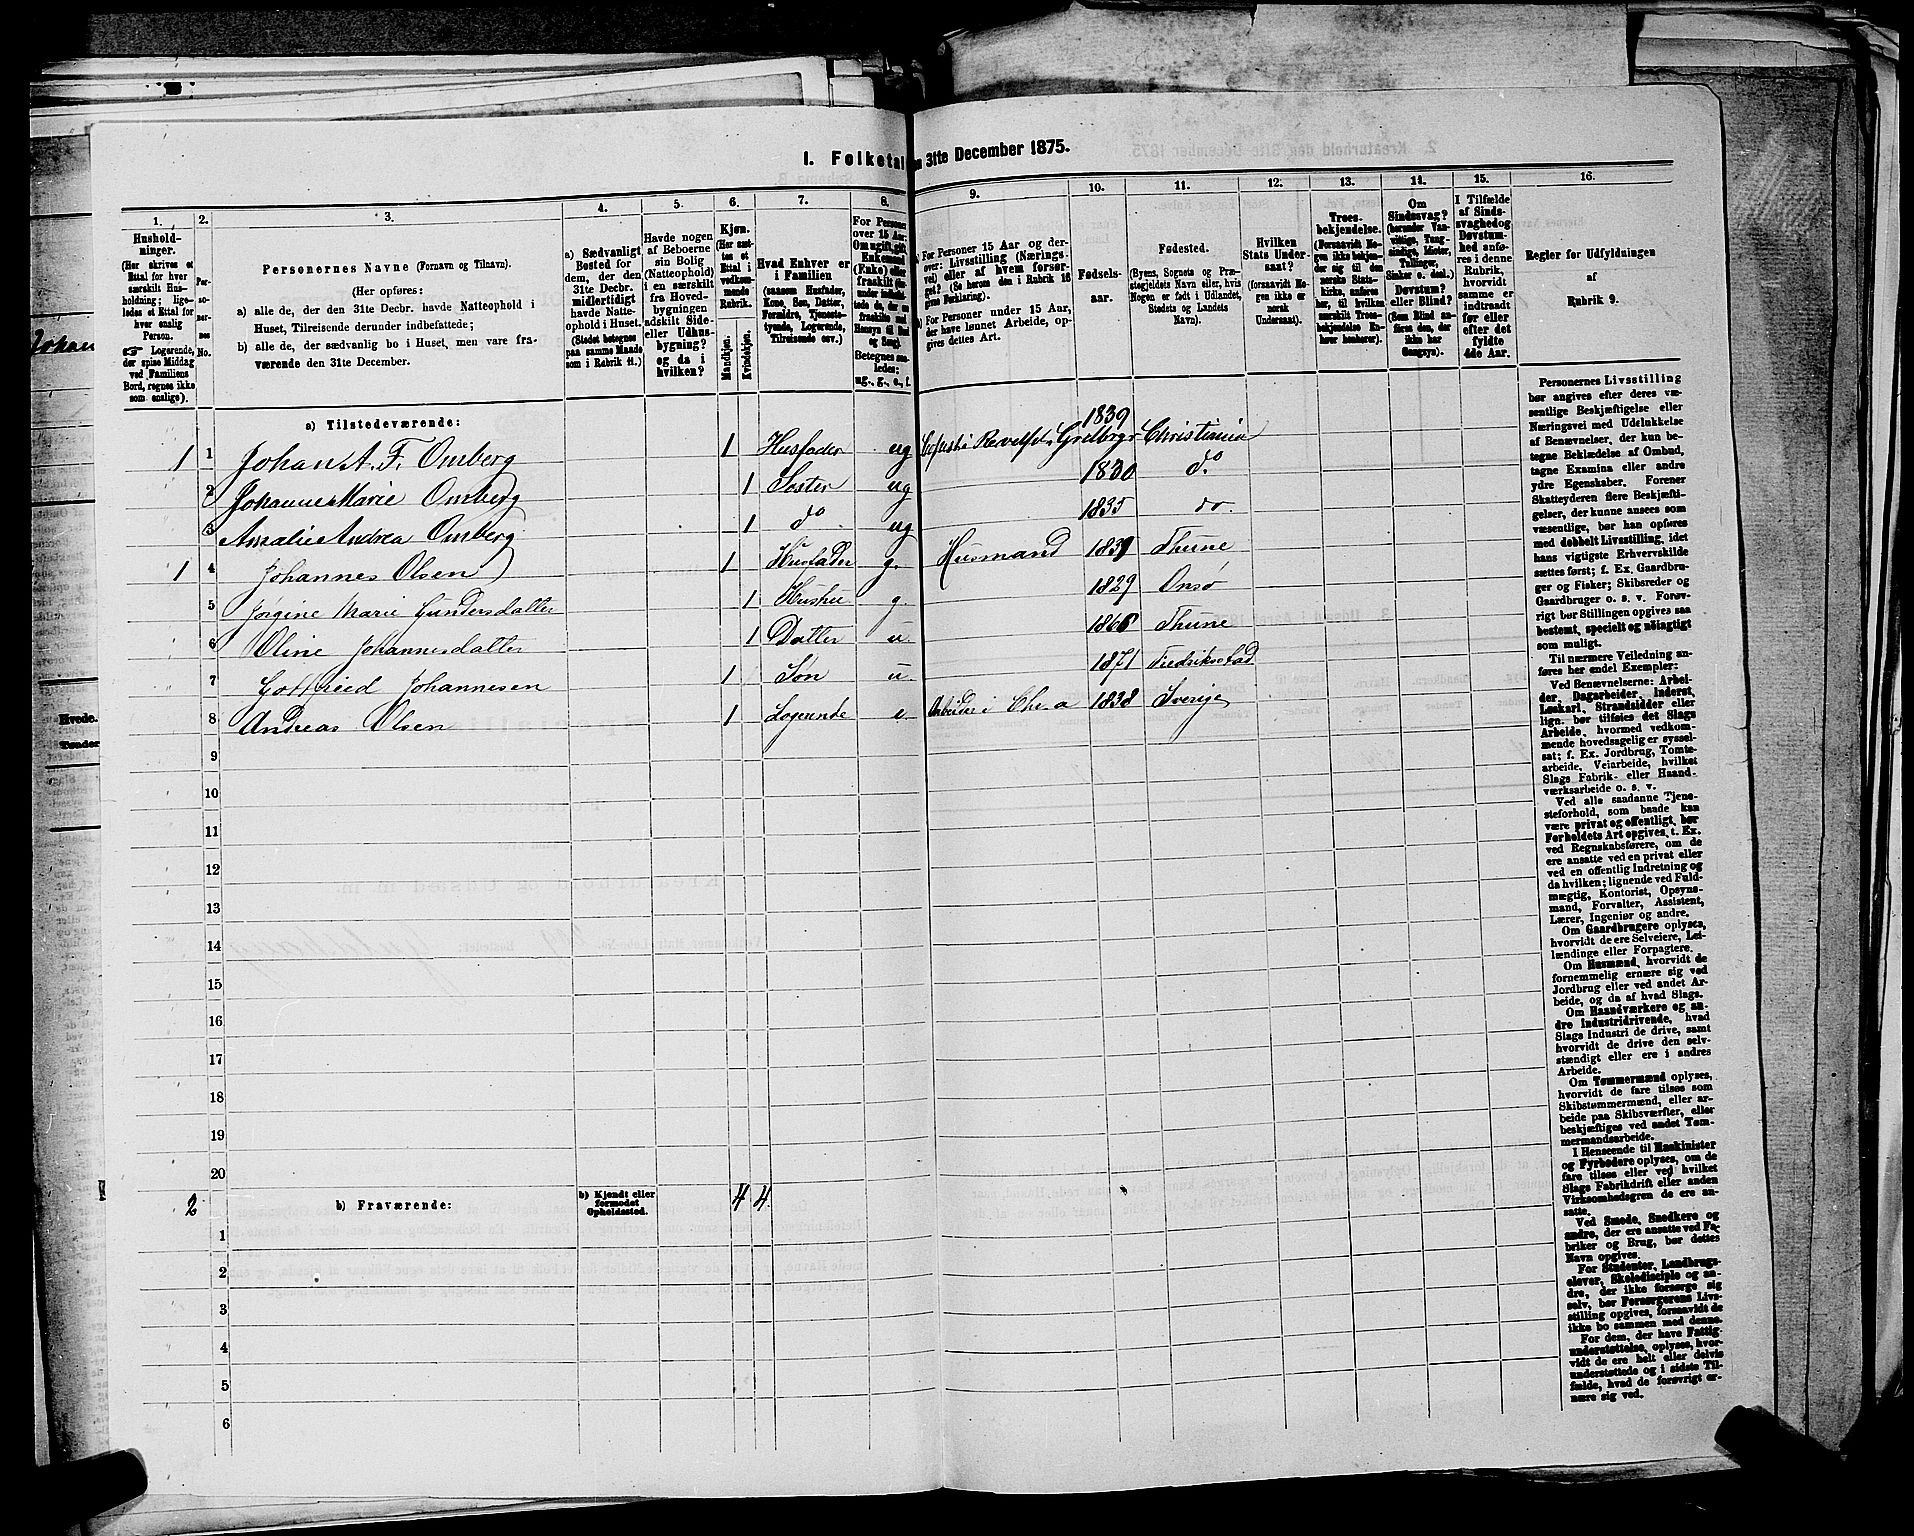 I. Folketal
n 31te December 1875.
1. 2. 3. 4. 5. 6. 7. 8. 9. 10. 11. 12. 13. 14. 15. 16.
Husholdninger.
(Her skrives et Ettal for hver særskilt Husholdning; ligeledes et Ettal for hver enslig Person.
☞ Logerende, der spise Middag ved Familiens Bord, regnes ikke som enslige).
Personernes No.
Personernes Navne (Fornavn og Tilnavn).
(Her opføres:
a) alle de, der den 31te Decbr. havde Natteophold i Huset, Tilreisende derunder indbefattede;
b) alle de, der sædvanlig bo i Huset, men vare fraværende den 31te December.
a) Sædvanligt Bosted for dem, der den 31te Decbr. midlertidigt havde Natteophold i Huset. (Stedet betegnes paa samme Maade som i Rubrik 11.)
Havde nogen af Beboerne sin Bolig (Natteophold) i en særskilt fra Hovedbygningen adskilt Side- eller Udhusbygning? og da i hvilken?
Kjøn. (Her sættes et Ettal i vedkommende Rubrik.
Mandkjøn.
Kvindekjøn.
Hvad Enhver er i Familien
(saasom Husfader, Kone, Søn, Datter, Forældre, Tjenestetyende, Logerende, Tilreisende osv.)
For Personer over 15 Aar: Om ugift, gift, Enkemand (Enke) eller fraskilt
Betegnes saaledes: ug., g., e., f.
a) For Personer 15 Aar og derover: Livsstilling (Næringsvei) eller af hvem forsørget? (Se herom den i Rubrik 16 givne Forklaring).
b) For Personer under 15 Aar, der have lønnet Arbeide, opgives dettes Art.
Fødselsaar.
Fødested.
(Byens, Sognets og Præstegjeldets Navn eller, hvis Nogen er født i Udlandet, Stedets og Landets Navn).
Hvilken Stats Undersaat?
(forsaavidt Nogen ikke er norsk Undersaat).
Troesbekjendelse.
(Forsaavidt Nogen ikke bekjender sig til den norske Statskirke, anføres her, til hvilken særskilt Troesbekjendelse Enhver henhører).
Om Sindssvag? (herunder Vanvittige, Tungsindige, Idioter, Tullinger, Sinker o. desl.) Døvstum? eller Blind? (Som Blind anføres den, der ikke har Gangsyn).
I Tilfælde af Sindssvaghed og Døvstumhed anføres i denne Rubrik, hvorvidt samme er indtraadt før eller efter det fyldte 4de Aar.
Regler for Udfyldningen
af
Rubrik 9.
a) Tilstedeværende:
1 1 Johan A. F. Omberg 1 Husfader ug 1839 Christiania
2 Johanne Marie Omberg 1 Søster ug 1830 do
3 Amalie Andrea Omberg 1 do ug 1835 do
1 4 Johannes Olsen 1 Husfader g. Husmand 1831 Thune
5 Jørgine Marie Gundersdatter 1 Hustru g. 1829 Onsø
6 Oline Johannesdatter 1 Datter u. 1868 Thune
7 Gotfried Johannesen 1 Søn u. 1871 Fredriksstad
8 Andreas Olsen 1 Logerende e. Arbeider i Chr.a 1838 Sverige
9
10
11
12
13
14
15
16
17
18
19
20
2 b) Fraværende: b) Kjendt eller formodet Opholdssted. 4 4
1
2
3
4
5
6
Personernes Livsstilling
bør angives efter deres væ-
sentlige Beskjæftigelse eller
Næringsvei med Udelukkelse
af Benævnelser, der kun be-
tegne Beklædelse af Ombud,
tagne Examina eller andre
ydre Egenskaber. Forener
Skatteyderen flere Beskjæfti-
gelser, der kunne ansees som
væsentlige, bør han opføres
med dobbelt Livsstilling, idet
hans vigtigste Erhvervskilde
sættes først; f. Ex. Gaardbru-
ger og Fisker; Skibsreder og
Gaardbruger o. s. v. Forøv-
rigt bør Stillingen opgives saa
bestemt, specielt og nöiagtigt
som muligt.
Til nærmere Veiledning an-
føres her endel Exempler:
Ved Benævnelserne: Arbei-
der, Dagarbeider, Inderst,
Løskarl, Strandsidder eller
lign. bør tilføies det Slags
Arbeide, hvormed vedkom-
mende hovedsagelig er syssel-
sat; f. Ex. Jordbrug, Tomte-
arbeide, Veiarbeide, hvilket
Slags Fabrik- eller Haand-
værksarbeide o. s. v.
Ved alle saadanne Tjene-
steforhold, som baade kan
være privat og offentligt, bør
Forholdets Art opgives, t. Ex.
ved Regnskabsførere, om de
ere ansatte ved en privat eller
ved en offentlig Indretning og
da hvilken; lignende ved Fuld-
mægtig, Kontorist, Opsyns-
mand, Forvalter, Assistent,
Lærer, Ingeniør og andre.
Om Gaardbrugere oplyses,
hvorvidt de ere Selveiere, Lei-
lændinge eller Forpagtere.
Om Husmænd, hvorvidt de
fornemmelig ernære sig ved
Jordbrug eller ved andet Ar-
beide, og da af hvad Slags.
Om Haandværkere og an-
dre Industridrivende, hvad
Slags Industri de drive, samt
hvorvidt de drive den selv-
stændigt eller ere i andres
Arbeide.
Om Tømmermænd oplyses,
hvorvidt de fare tilsøs som
Skibstømmermænd, eller ar-
beide paa Skibsværfter, eller
beskjæftiges ved andet Tøm-
mermandsarbeide.
I Henseende til Maskinister
og Fyrbødere oplyses, om de
fare tilsøs eller ved hvilket
Slags Fabrikdrift eller anden
Virksomhedsgren de ere an-
satte.
Ved Smede, Snedkere og
andre, der ere ansatte ved Fa-
briker og Brug, bør dettes
Navn opgives.
For Studenter, Landbrugs-
elever, Skoledisciple og an-
dre, der ikke forsørge sig
selv, bør Forsørgerens Livs-
stilling opgives, forsaavidt de
ikke bo sammen med denne.
For dem, der have Fattig-
understøttelse, oplyses, hvor-
vidt de ere helt eller delvis
understøttede og i sidste Til-
fælde, hvad de forøvrigt er-
nære sig ved.
Johan
Hvede.
Tønder